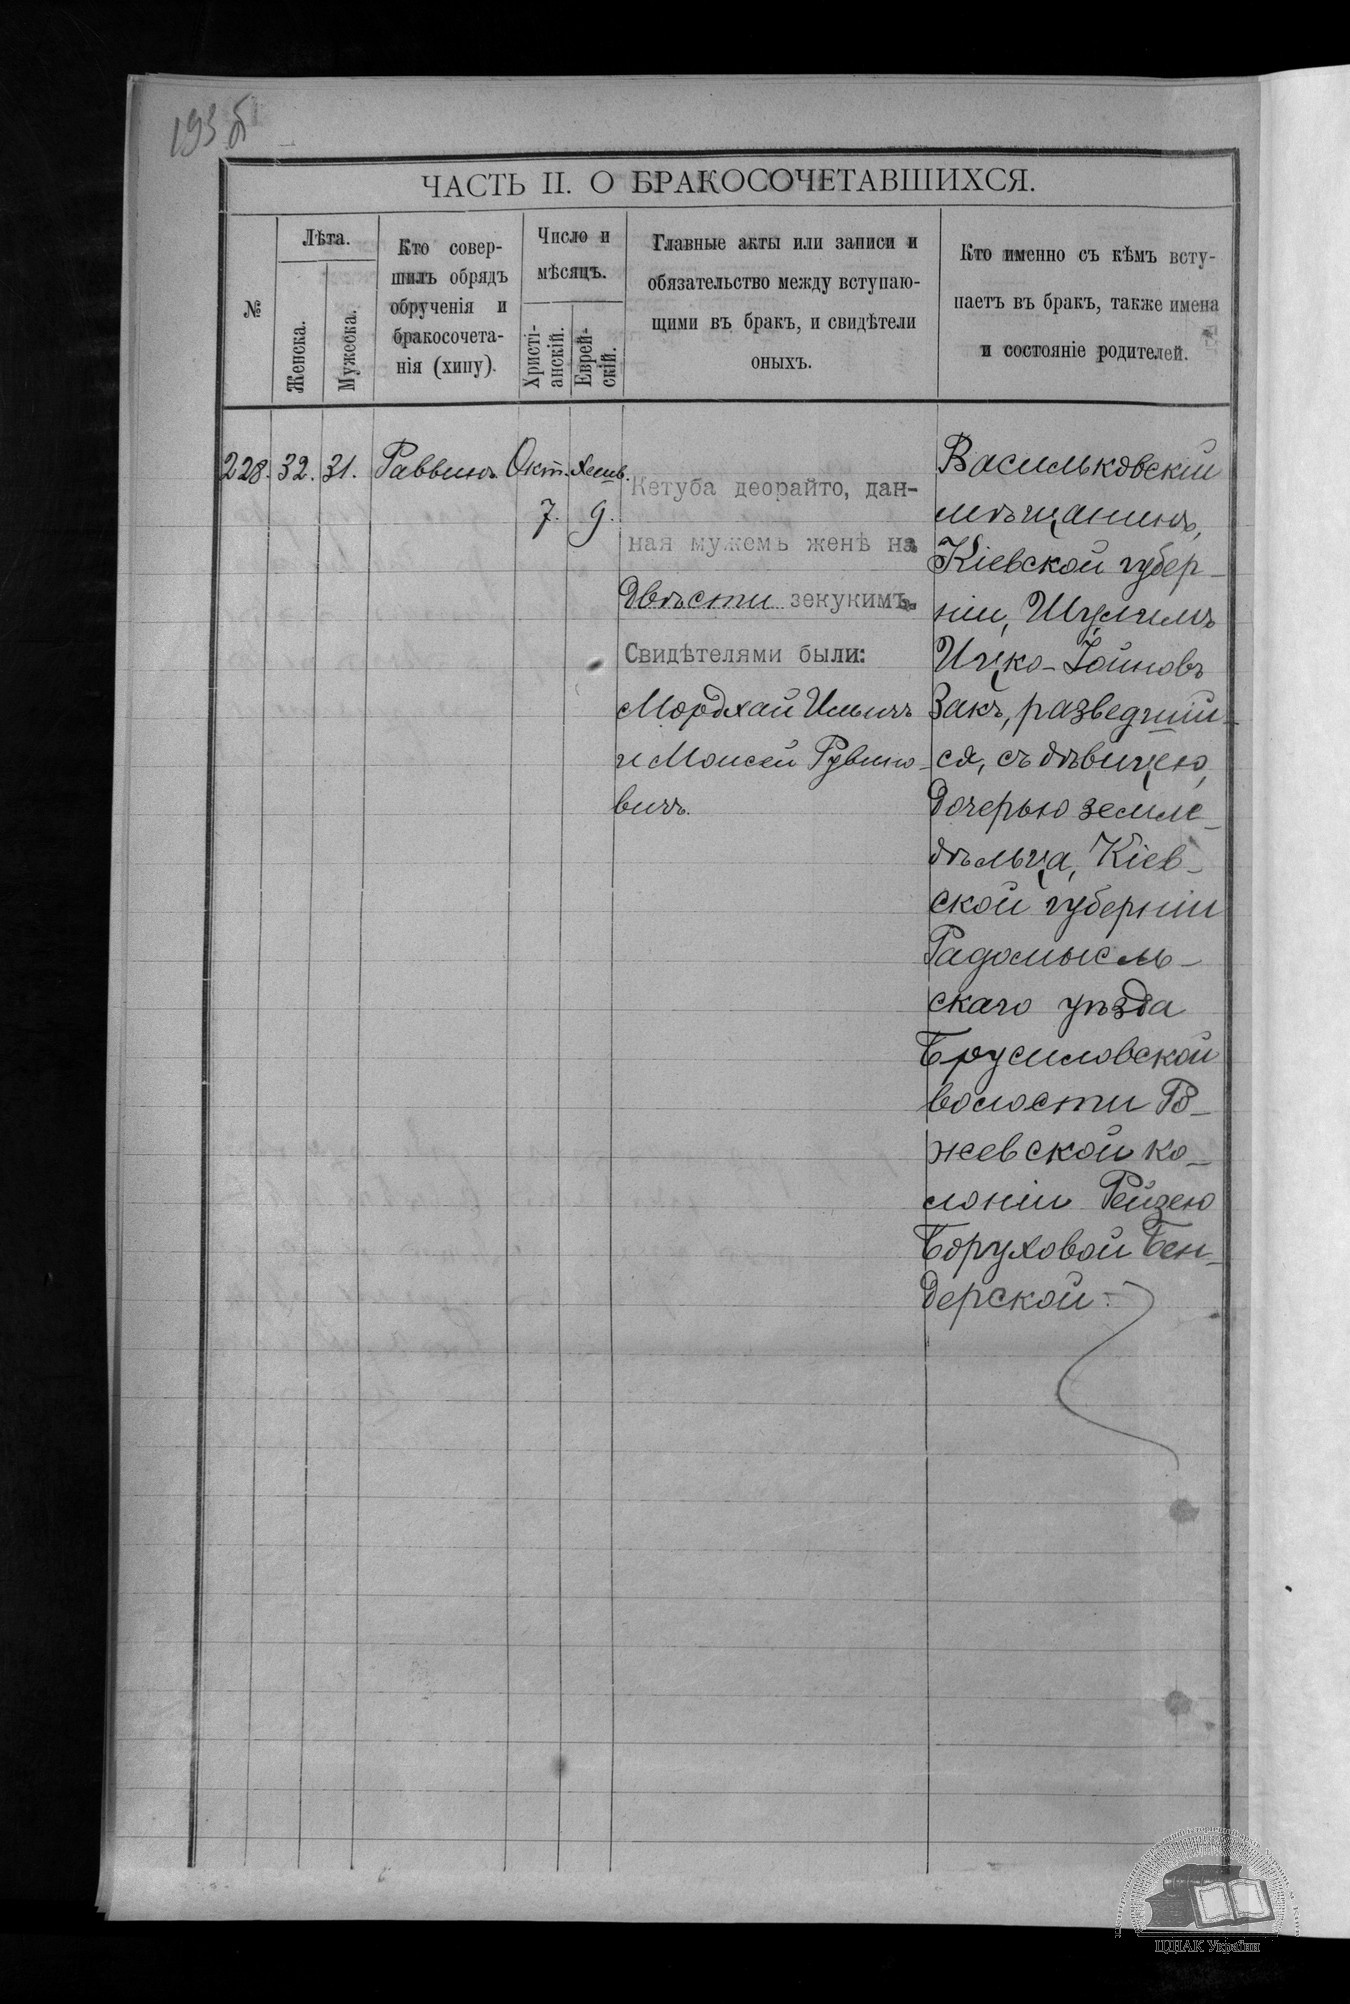 193 б
ЧАСТЬ II. О БРАКОСОЧЕТАВШИХСЯ.
№
Лѣта.
Женска.
Мужеска.
Кто совер-
шилъ обрядъ
обрученія и
бракосочета-
нія (хипу).
Число и
мѣсяцъ.
Христі-
анскій.
Еврей-
скій.
Главные акты или записи и
обязательство между вступаю-
щими въ бракъ, и свидѣтели
оныхъ.
Кто именно съ кѣмъ всту-
паетъ въ бракъ, также имена
и состояніе родителей.
228. 32. 31. Раввинъ. Окт. Хешв.
7. 9.
Кетуба деорайто, дан-
ная мужемъ женѣ на
двѣсти зекукимъ.
Свидѣтелями были:
Мордхай Ильичъ
и Моисей Рувино-
вичъ.
Васильковскій
мѣщанинъ,
Кіевской губер-
ніи, Шулимъ
Ицко-Іойновъ
Закъ, разведшій-
ся, съ дѣвицею,
дочерью земле-
дѣльца, Кіев-
ской губерніи
Радомысль-
скаго уѣзда
Брусиловской
волости Ро-
жевской ко-
лоніи Рейзею
Боруховой Бен-
дерской.
ЦДІАК України